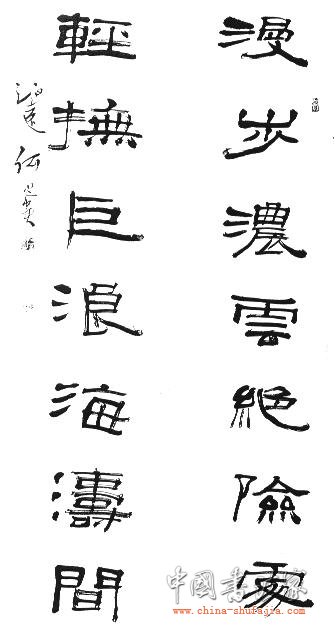 漫步濃雲絶險處
輕撫巨浪海濤間
中國書法家
www.china-shufajia.com